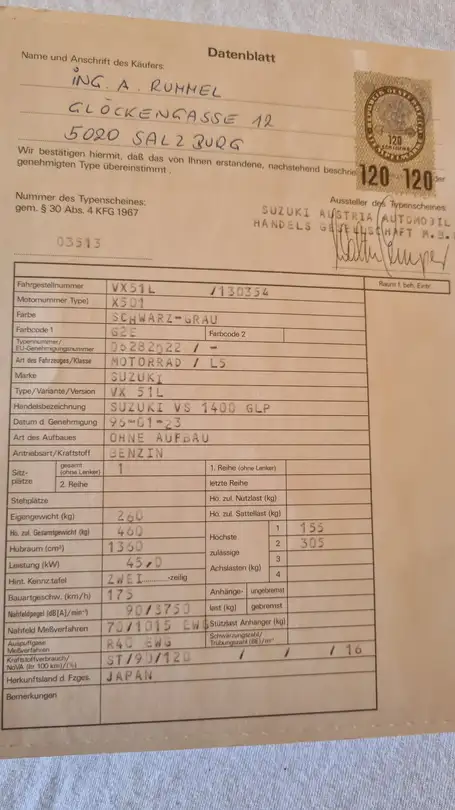 Datenblatt
Name und Anschrift des Käufers:
ING. A. RUMMEL
GLOCKENGASSE 12
5020 SALZBURG
Wir bestätigen hiermit, daß das von Ihnen erstandene, nachstehend beschrie
genehmigten Type übereinstimmt.
120
120 120
Nummer des Typenscheines:
gem. § 30 Abs. 4 KFG 1967
03513
Aussteller des Typenscheines
SUZUKI AUSTRIA AUTOMOBIL
HANDELS GESELLSCHAFT M.B.
Raum f. beh. Eintr.
Fahrgestellnummer VX51L /130354
Motornummer Type) X501
Farbe SCHWARZ-GRAU
Farbcode 1 G2E Farbcode 2
Typennummer/
EU-Genehmigungsnummer 06282522 / -
Art des Fahrzeuges/Klasse MOTORRAD / L5
Marke SUZUKI
Type/Variante/Version VX 51L
Handelsbezeichnung SUZUKI VS 1400 GLP
Datum d. Genehmigung 95-01-23
Art des Aufbaues OHNE AUFBAU
Antriebsart/Kraftstoff BENZIN
Sitz-plätze gesamt (ohne Lenker) 1 1. Reihe (ohne Lenker)
2. Reihe letzte Reihe
Stehplätze Hö. zul. Nutzlast (kg)
Eigengewicht (kg) 260 Hö. zul. Sattellast (kg)
Hö. zul. Gesamtgewicht (kg) 460 Höchste zulässige Achslasten (kg) 1 155
Hubraum (cm³) 1360 2 305
Leistung (kW) 45,0 3
Hint. Kennz.tafel ZWEI -zeilig 4
Bauartgeschw. (km/h) 175 Anhänge-last (kg) ungebremst
Nahfeldpegel (dB[A]/min⁻¹) 90/3750 gebremst
Nahfeld Meßverfahren 78/1015 EWG Stützlast Anhänger (kg)
Auspuffgase
Meßverfahren R40 EWG Schwärzungszahl/
Kraftstoffverbrauch/
NoVA (ltr 100 km)/(%) ST/90/120 / / / 16
Herkunftsland d. Fzges. JAPAN
Bemerkungen